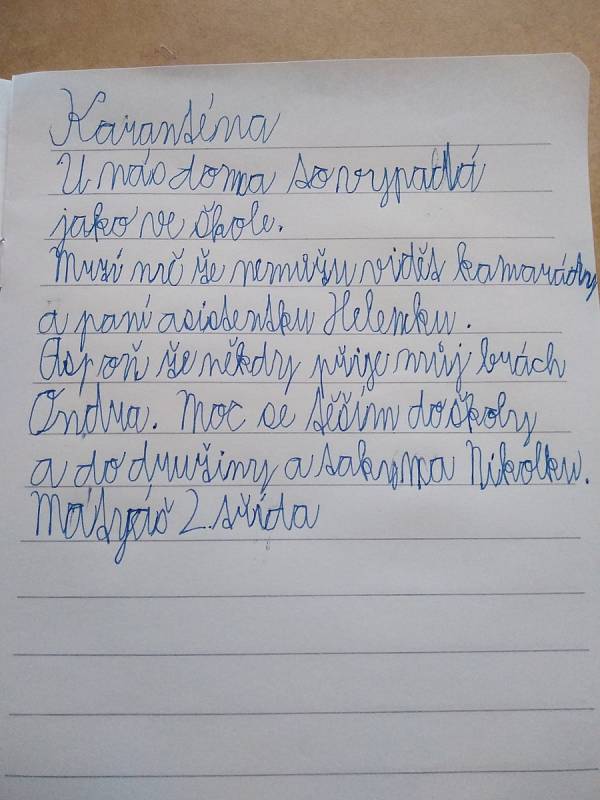 Karanténa
U nás doma to vypadá
jako ve škole.
Mrzí mě že nemůžu vidět kamarády
a paní asistentku Helenku.
Aspoň že někdy přije můj brách
Ondra. Moc se těším do školy
a do družiny a taky na Nikolku.
Mátyáš 2. třída